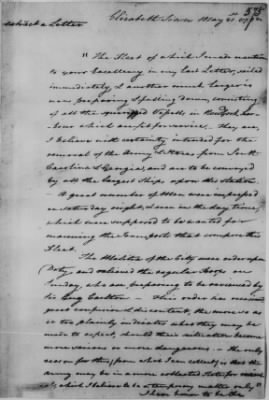 575
Extract a Letter Elizabeth Town May 21
"The Fleet of which I made mention
to your Excellency in my last Letter, sailed
immediately, & another much larger is
now preparing & falling down, consisting
of all the Vessells in Har-
-bour which are fit for service. They are,
I believe with certainty intended for the
removal of the Army & Stores from South
Carolina & Georgia, and are to be convoyed
by all the largest Ships upon this Station.
A great number of Men were impressed
on Saturday night, & even in the day time,
which were supposed to be wanted for
manning the Transports that compose this
Fleet.
The Militia of the City were order'd upon
Duty, and relieved the regular Troops on
Sunday, who are preparing to be reviewed by
Sir Guy Carlton — This order has occasioned
great discontent, the more so as
it too plainly indicates what they may be
made to expect, should their situation become
more serious or more dangerous — the only
reason for this, from which I can collect, is that the
Army may be in a more collected State for
, which I believe to be a temporary matter only"
I have honor to be &c